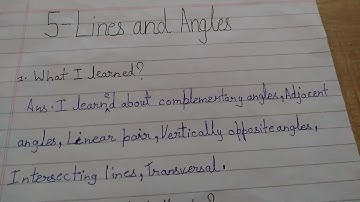 5-Lines and Angles
1. What I learned?
Ans. I learned about complementary angles, Adjacent
angles, Linear pair, Vertically opposite angles,
Intersecting lines, Transversal.